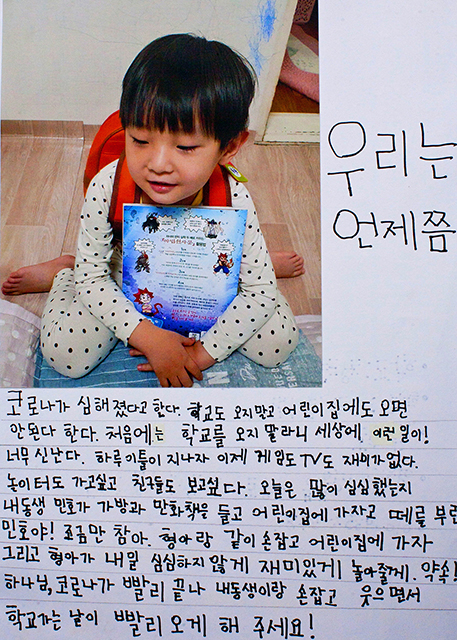 우리는
언제쯤
코로나가 심해졌다고 한다. 학교도 오지말고 어린이집에도 오면
안된다 한다. 처음에는 학교를 오지 말라니 세상에 이런 일이!
너무 신난다. 하루이틀이 지나자 이제 게임도 TV도 재미가없다.
놀이터도 가고싶고 친구들도 보고싶다. 오늘은 많이 심심했는지
내동생 민호가 가방과 만화책을 들고 어린이집에 가자고 떼를 부린
민호야! 조금만 참아. 형아랑 같이 손잡고 어린이집에 가자
그리고 형아가 내일 심심하지 않게 재미있게 놀아줄게. 약속!
하나님, 코로나가 빨리 끝나 내동생이랑 손잡고 웃으면서
학교가는 날이 빨리 오게 해 주세요!